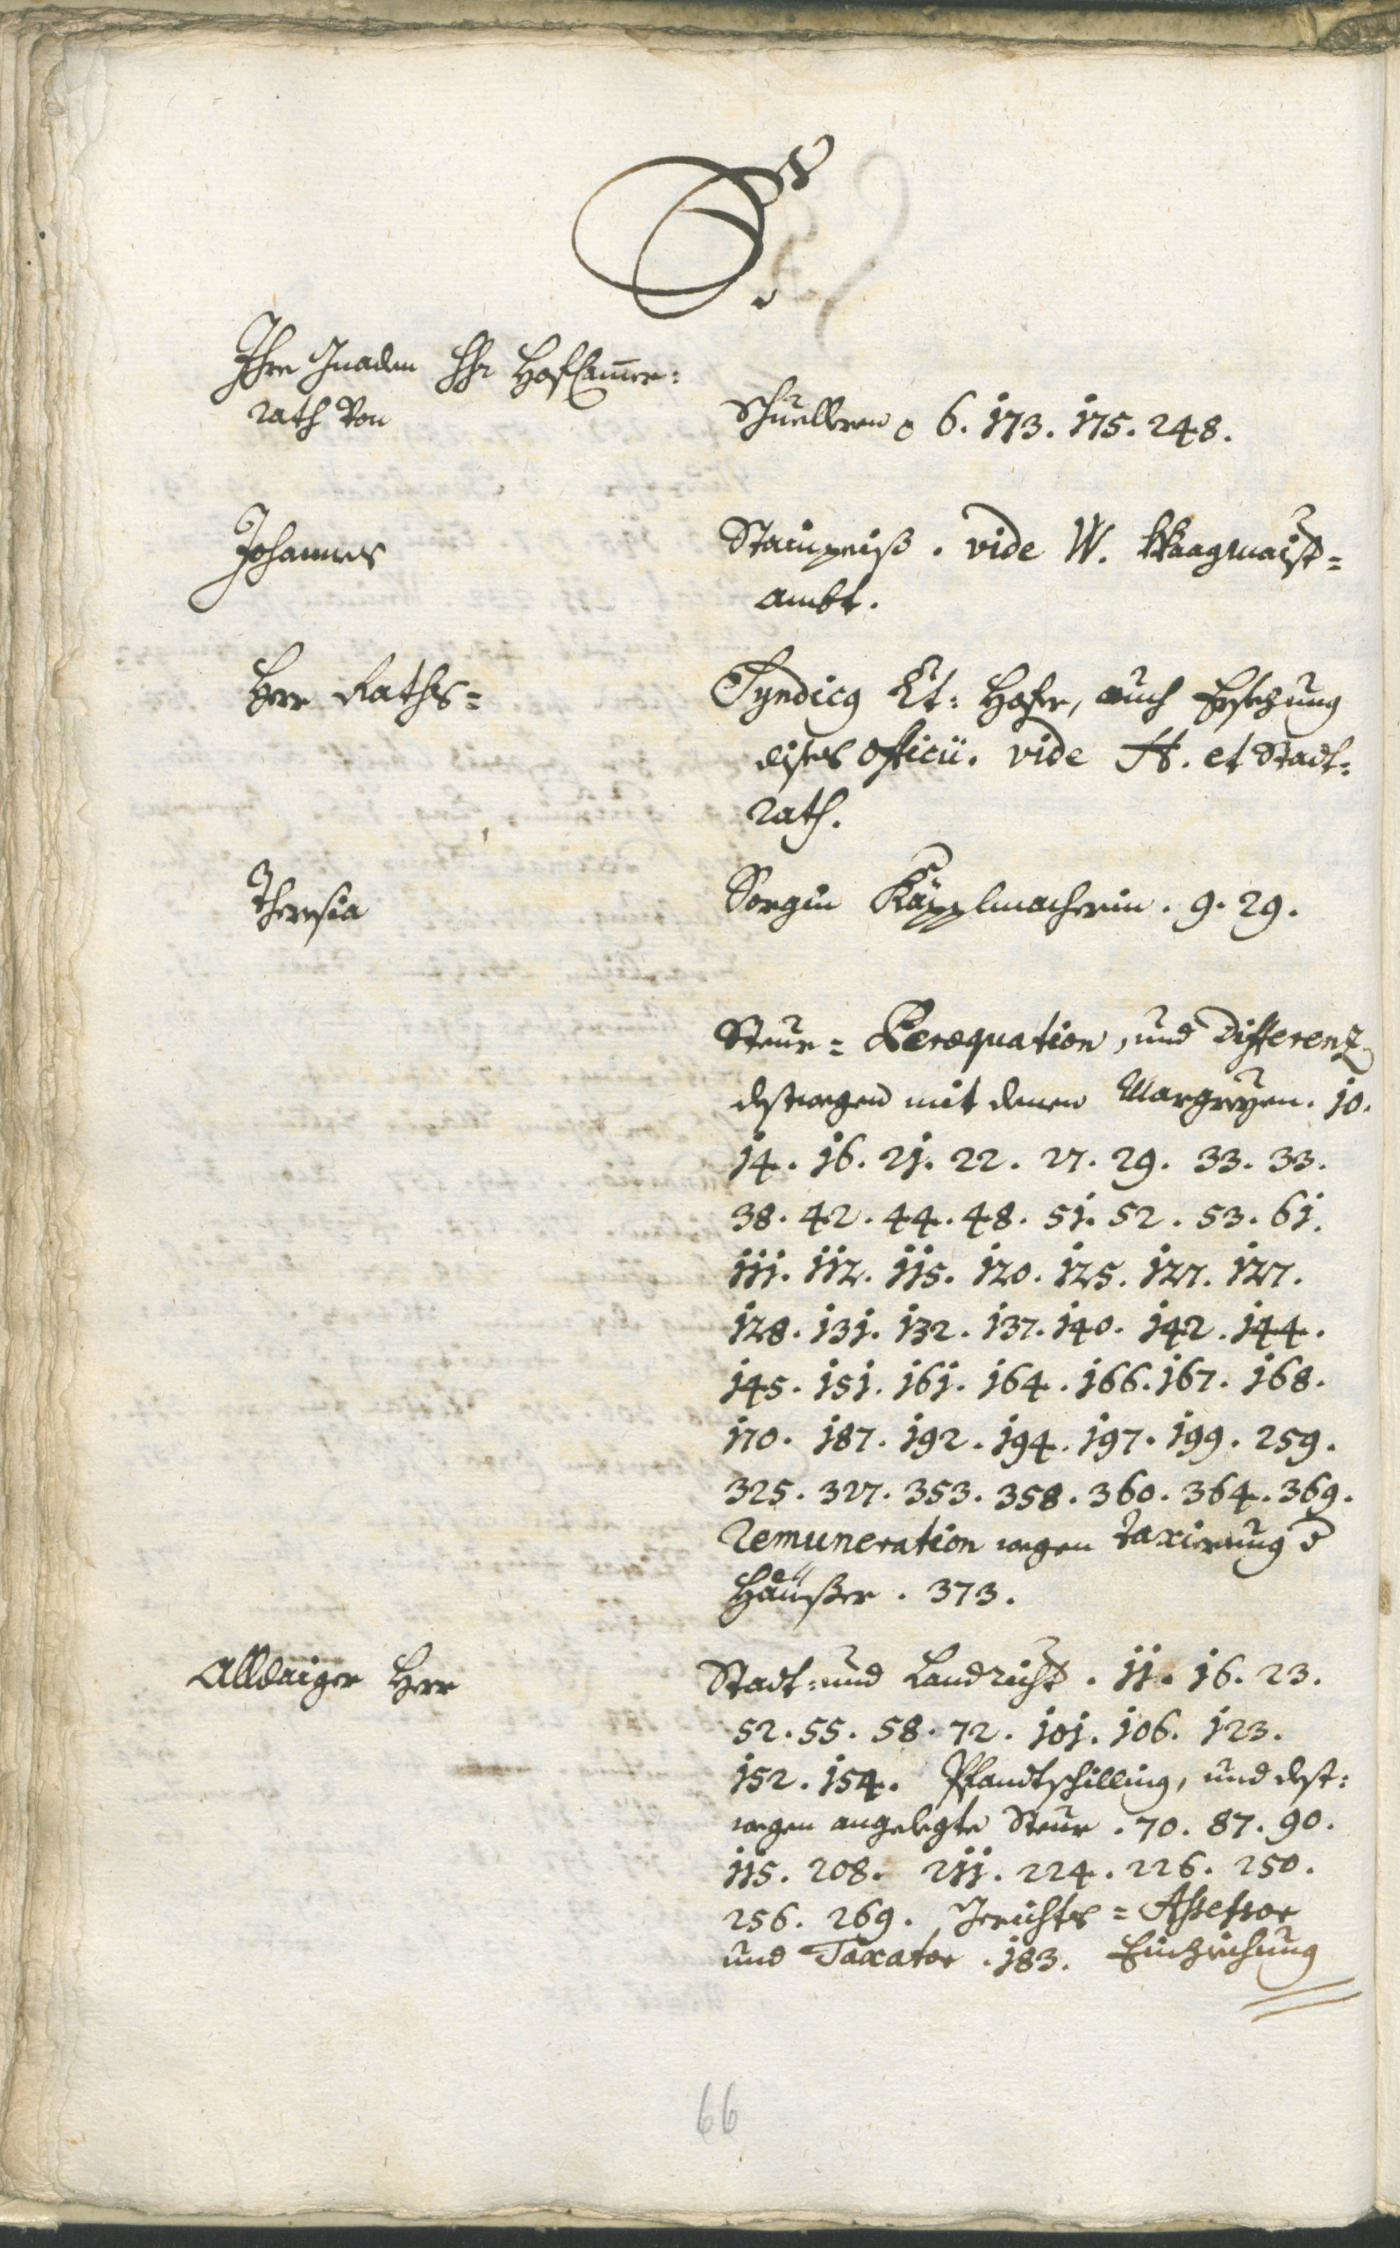 S.
Ihro Gnaden Hr: HofCam̄er:
rath Von
Schuellern 6. 173. 175. 248.
Johannes
Staimpeiß. vide W. Waagmaist=
ambt.
Herr Raths=
Syndicus Lt: Hofer, auch Ersezung
dises officii. vide H. et Stadt=
rath.
Theresia
Sorgin Käpplmacherin. 9. 29.
Steur= Peræquation, und Differenz
destwegen mit denen Margreyen. 10.
14. 16. 21. 22. 27. 29. 33. 33.
38. 42. 44. 48. 51. 52. 53. 61.
111. 112. 115. 120. 125. 127. 127.
128. 131. 132. 137. 140. 142. 144.
145. 151. 161. 164. 166. 167. 168.
170. 187. 192. 194. 197. 199. 259.
325. 327. 353. 358. 360. 364. 369.
Remuneration wegen taxierung d
Häußer. 373.
Alldaiger Herr
Stadt= und Landricht. 11. 16. 23.
52. 55. 58. 72. 101. 106. 123.
152. 154. Pfandtschilling, und dest=
wegen angelegte Steur. 70. 87. 90.
115. 208. 211. 224. 226. 250.
256. 269. Gerichts= Assessor
und Taxator. 183. Einziehung
66